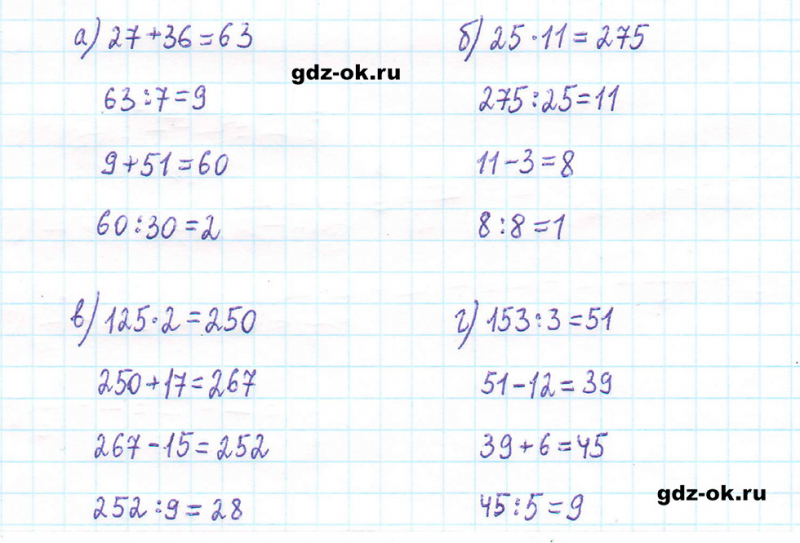 а) 27+36=63
gdz-ok.ru
63:7=9
9+51=60
60:30=2
б) 25·11=275
275:25=11
11-3=8
8:8=1
в) 125·2=250
250+17=267
267-15=252
252:9=28
г) 153:3=51
51-12=39
39+6=45
45:5=9
gdz-ok.ru